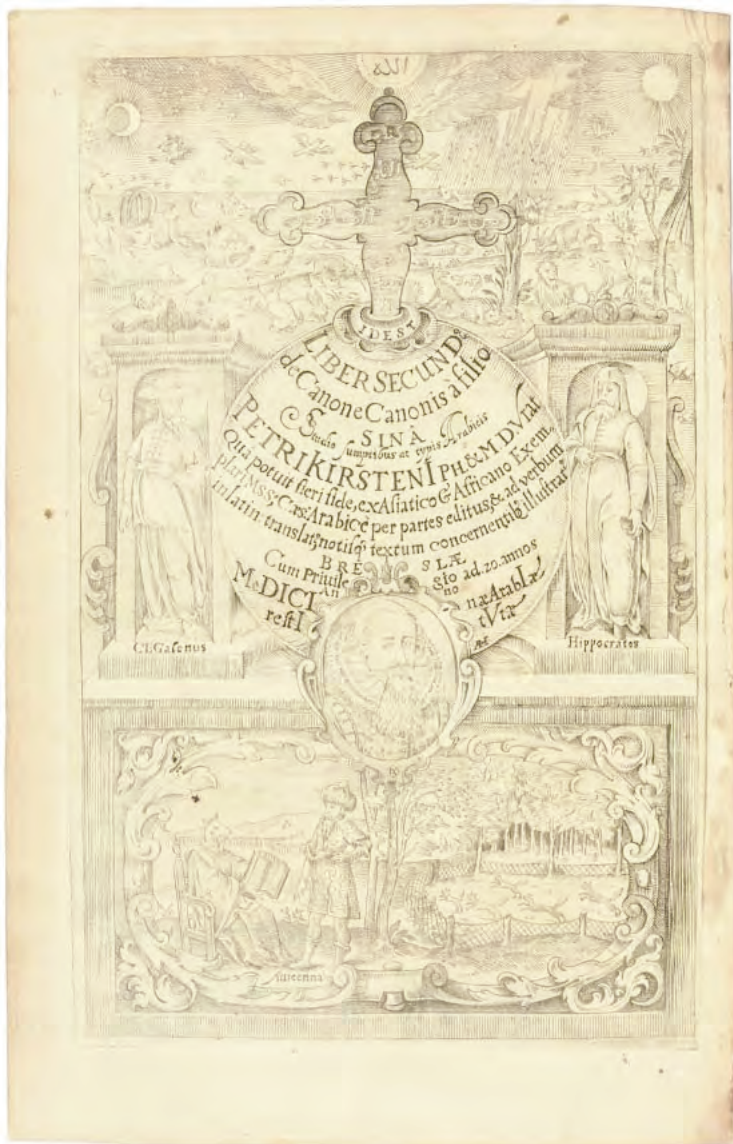 الله
IDEST
LIBER SECUNDꝰ
de Canone Canonis à filio
SINA
Studio sumptibus ac typis Arabicis
PETRI KIRSTENI PH. & M. D Vrat
Quà potuit fieri fide, ex Asiatico & Africano Exem,,
plari MSS, Cæs. Arabicè per partes editus, & ad verbum
in latin. translatꝰ notisqꝫ textum concernentibꝰ illustratꝰ
BRE SLÆ
Cum Privile gio ad. 20. annos
An no
MeDICI næ ArabIæ
restI tVtæ
Cl. Galenus
Hippocrates
Avicenna